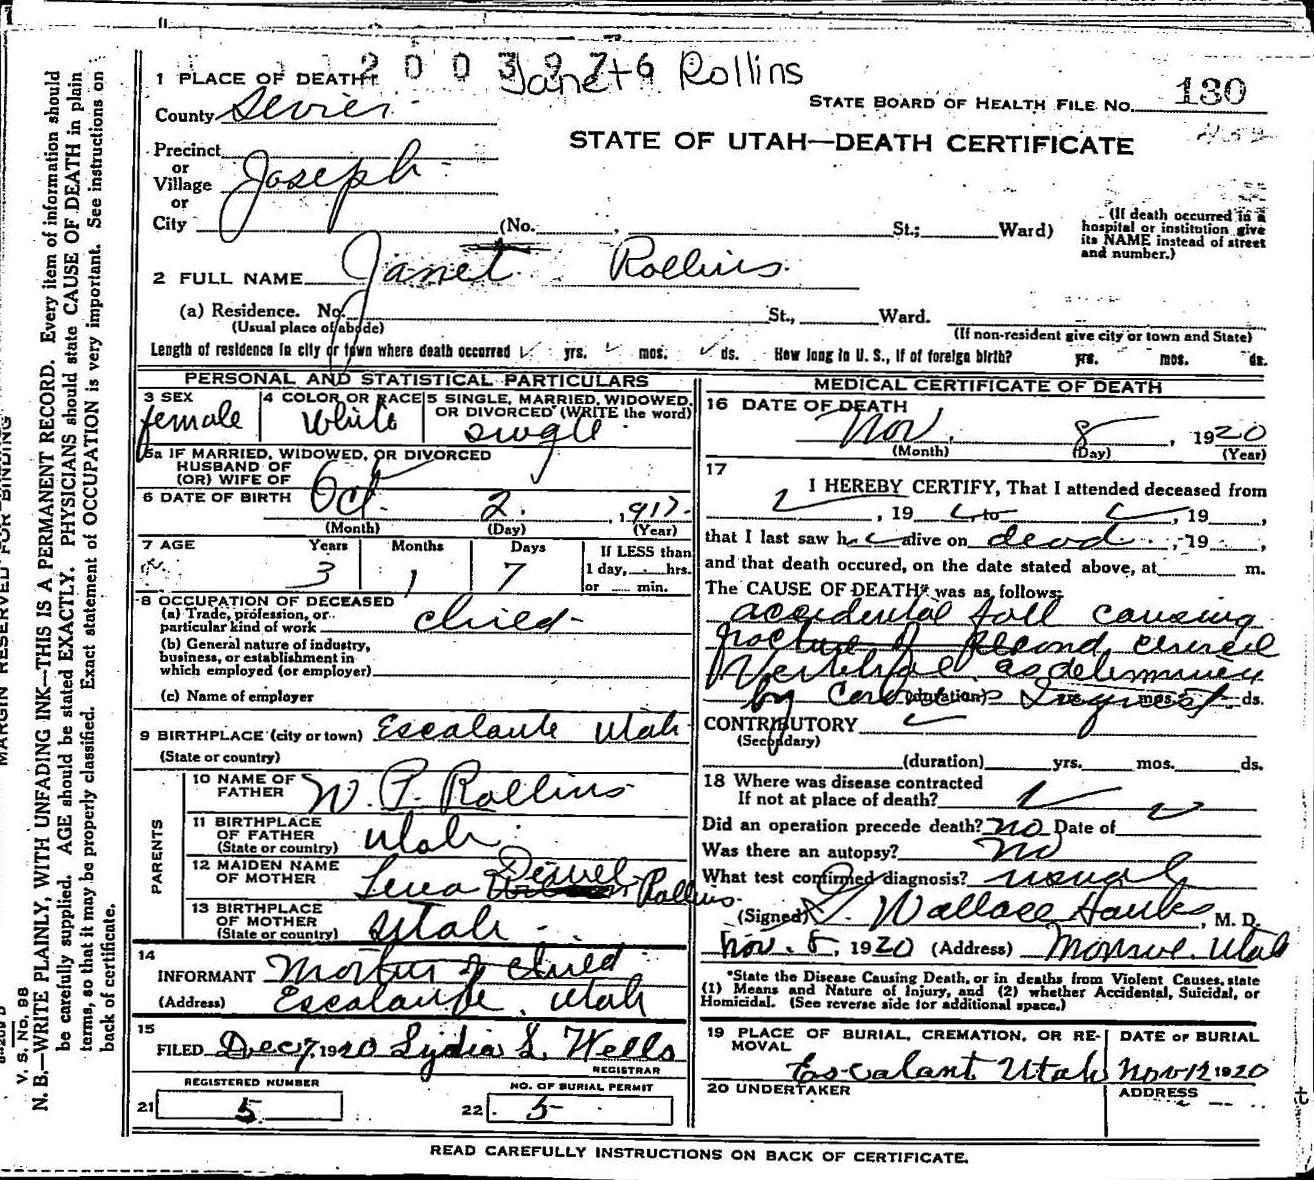 2003976 Janet Rollins
1 PLACE OF DEATH
STATE BOARD OF HEALTH FILE NO. 130
County Sevier
STATE OF UTAH—DEATH CERTIFICATE
Precinct
or
Village Joseph
or
City (No. , St.; Ward)
(If death occurred in a
hospital or institution give
its NAME instead of street
and number.)
2 FULL NAME Janet Rollins
(a) Residence. No. St., Ward.
(Usual place of abode)
(If non-resident give city or town and State)
Length of residence in city or town where death occurred yrs. mos. ds. How long in U. S., if of foreign birth? yrs. mos. ds.
PERSONAL AND STATISTICAL PARTICULARS
3 SEX
female
4 COLOR OR RACE
White
5 SINGLE, MARRIED, WIDOWED,
OR DIVORCED (WRITE the word)
single
5a IF MARRIED, WIDOWED, OR DIVORCED
HUSBAND OF
(OR) WIFE OF
6 DATE OF BIRTH Oct. 2. , 1917.
(Month) (Day) (Year)
7 AGE
Years Months Days
3 1 7
If LESS than
1 day, hrs.
or min.
8 OCCUPATION OF DECEASED
(a) Trade, profession, or
particular kind of work child
(b) General nature of industry,
business, or establishment in
which employed (or employer)
(c) Name of employer
9 BIRTHPLACE (city or town) Escalante Utah
(State or country)
PARENTS
10 NAME OF
FATHER W. P. Rollins
11 BIRTHPLACE
OF FATHER
(State or country) Utah
12 MAIDEN NAME
OF MOTHER Lena Deuel Rollins
13 BIRTHPLACE
OF MOTHER
(State or country) Utah
14
INFORMANT Mother of child
(Address) Escalante, Utah
15
FILED Dec 7, 1920 Lydia L. Wells
REGISTRAR
REGISTERED NUMBER
21 5
NO. OF BURIAL PERMIT
22 5
MEDICAL CERTIFICATE OF DEATH
16 DATE OF DEATH
Nov. 8 , 1920
(Month) (Day) (Year)
17
I HEREBY CERTIFY, That I attended deceased from
, 19 to , 19 ,
that I last saw h alive on dead. , 19 ,
and that death occured, on the date stated above, at m.
The CAUSE OF DEATH* was as follows:
accidental fall causing
fracture of second cervical
Vertebrae as determined
by Coroner's Inquest
(duration) yrs. mos. ds.
CONTRIBUTORY
(Secondary)
(duration) yrs. mos. ds.
18 Where was disease contracted
If not at place of death?
Did an operation precede death? no Date of
Was there an autopsy? no
What test confirmed diagnosis? usual
(Signed) J. Wallace Hawks, M. D.
Nov. 8, 1920 (Address) Monroe, Utah
*State the Disease Causing Death, or in deaths from Violent Causes, state
(1) Means and Nature of Injury, and (2) whether Accidental, Suicidal, or
Homicidal. (See reverse side for additional space.)
19 PLACE OF BURIAL, CREMATION, OR RE-
MOVAL
Escalant Utah
DATE OF BURIAL
Nov 12 1920
20 UNDERTAKER
ADDRESS
READ CAREFULLY INSTRUCTIONS ON BACK OF CERTIFICATE.
MARGIN RESERVED FOR BINDING
V. S. No. 98
N. B.—WRITE PLAINLY, WITH UNFADING INK—THIS IS A PERMANENT RECORD. Every item of information should
be carefully supplied. AGE should be stated EXACTLY. PHYSICIANS should state CAUSE OF DEATH in plain
terms, so that it may be properly classified. Exact statement of OCCUPATION is very important. See instructions on
back of certificate.